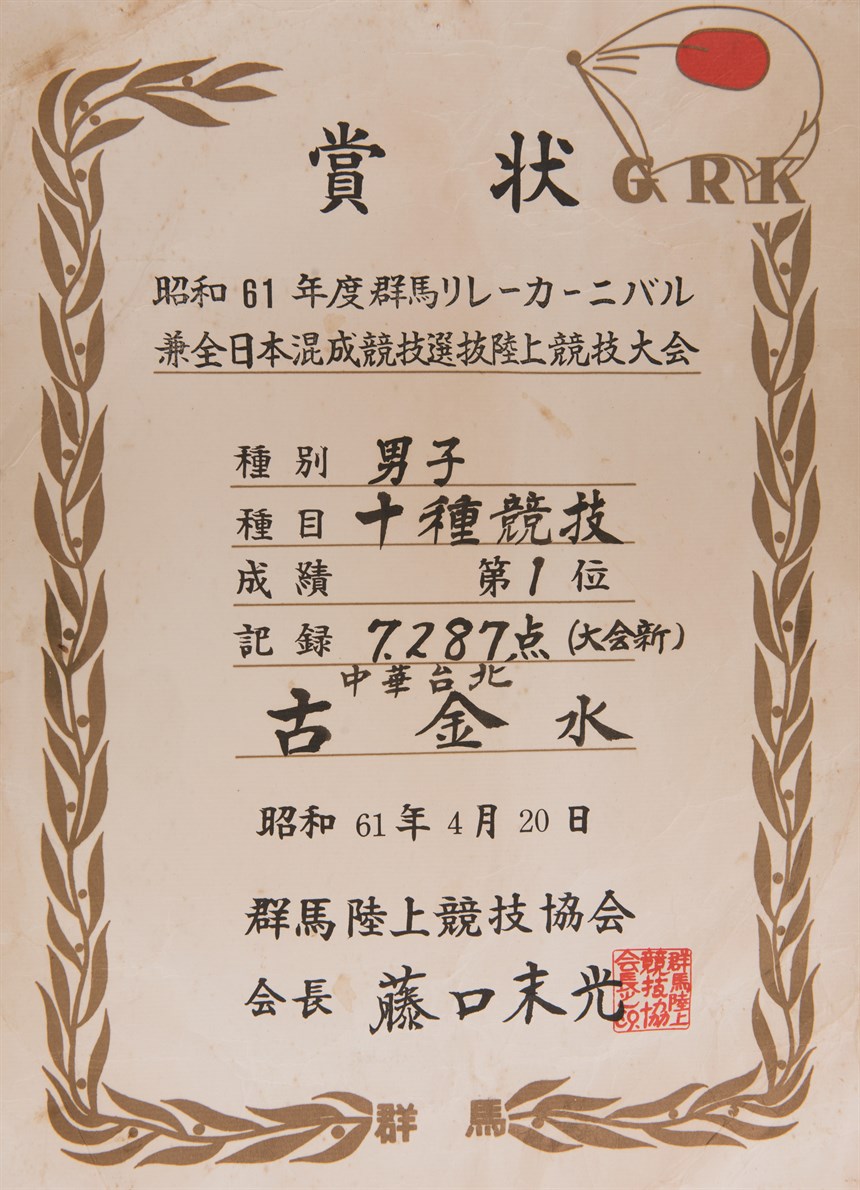 GRK
賞状
昭和61年度群馬リレーカーニバル
兼全日本混成競技選抜陸上競技大会
種別 男子
種目 十種競技
成績 第1位
記録 7.287点(大会新)
中華台北
古金水
昭和61年4月20日
群馬陸上競技協会
会長 藤口末光
群馬陸上
競技協
会長
群馬